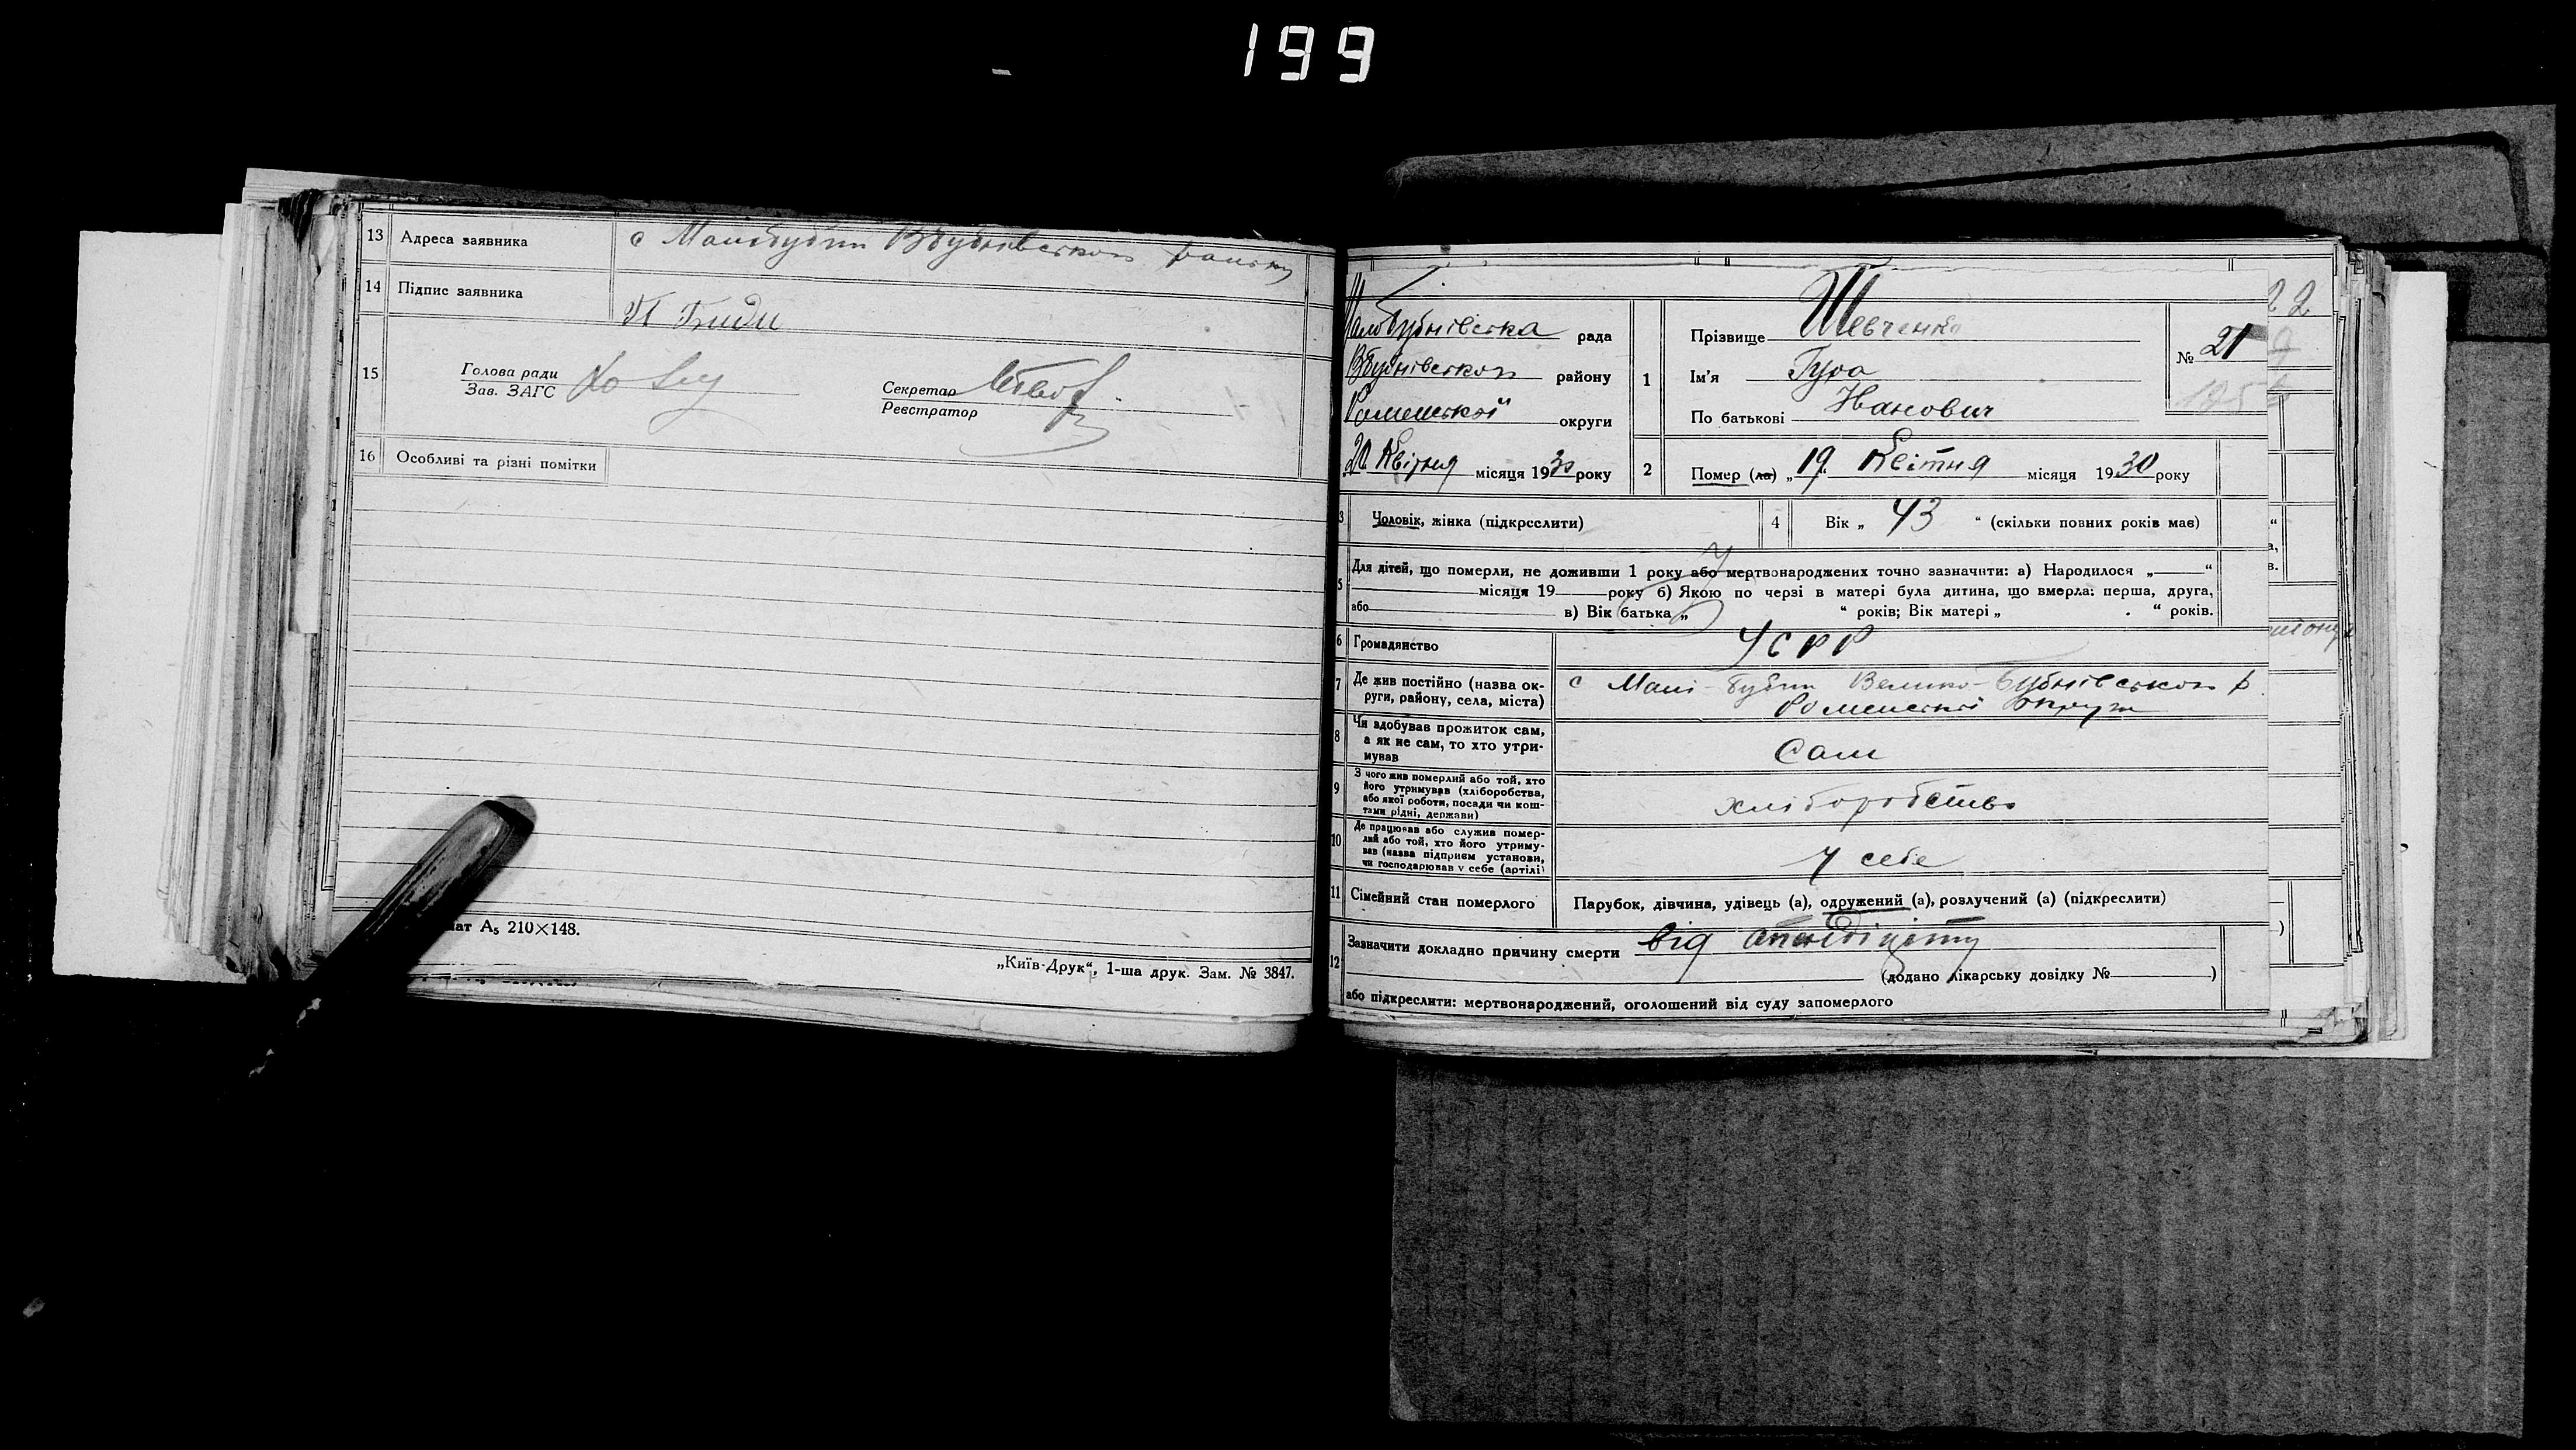 199
13 Адреса заявника с Малобубни Вбубнівського району
14 Підпис заявника П Биди
15 Голова ради
Зав. ЗАГС
Секретар
Реєстратор
16 Особливі та різні помітки
мат А5 210×148.
„Київ-Друк“, 1-ша друк. Зам. № 3847.
Малобубнівська рада
Вбубнівського району
Роменської округи
20 Квітня місяця 1930 року
1 Прізвище Шевченко
Ім’я Гура
По батькові Иванович
№ 21
2 Помер (ла) „19 Квітня місяця 1930 року
3 Чоловік, жінка (підкреслити)
4 Вік „ 43 “ (скільки повних років має)
5 Для дітей, що померли, не доживши 1 року або мертвонароджених точно зазначити: а) Народилося „ “
місяця 19 року б) Якою по черзі в матері була дитина, що вмерла: перша, друга,
або в) Вік батька „ “ років; Вік матері „ “ років.
6 Громадянство УСРР
7 Де жив постійно (назва ок-
руги, району, села, міста)
с Малі-Бубни Велико-Бубнівського р
Роменської округи
8 Чи здобував прожиток сам,
а як не сам, то хто утри-
мував
Сам
9 З чого жив померлий або той, хто
його утримував (хліборобства,
або якої роботи, посади чи кош-
тами рідні, держави)
хліборобство
10 Де працював або служив помер-
лий або той, хто його утриму-
вав (назва підприєм установи,
чи господарював у себе (артілі)
У себе
11 Сімейний стан померлого Парубок, дівчина, удівець (а), одружений (а), розлучений (а) (підкреслити)
12 Зазначити докладно причину смерти від апендіциту
(додано лікарську довідку № )
або підкреслити: мертвонароджений, оголошений від суду запомерлого
22